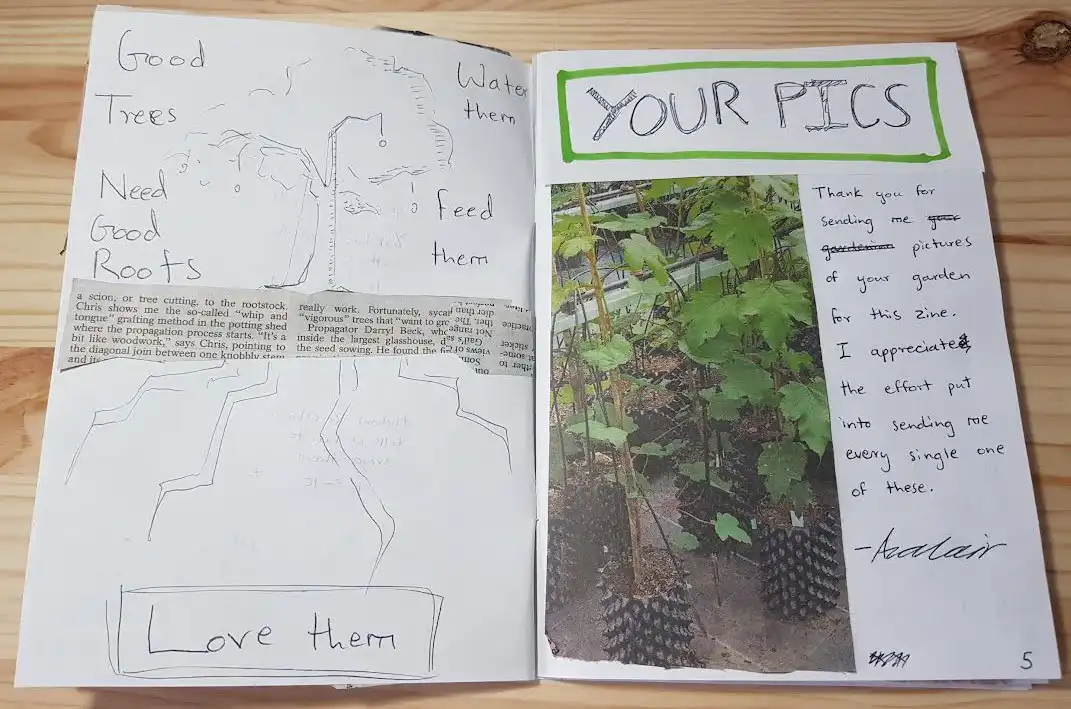 Good
Trees
Need
Good
Roots
Water
them
Feed
them
a scion, or tree cutting, to the rootstock.
Chris shows me the so-called "whip and
tongue" grafting method in the potting shed
where the propagation process starts. "It's a
bit like woodwork," says Chris, pointing to
the diagonal join between one knobbly stem
and its
really work. Fortunately, sycam
"vigorous" trees that "want to gro
Propagator Darryl Beck, who
inside the largest glasshouse, d
the seed sowing. He found the
Love them
YOUR PICS
Thank you for
sending me your
gardenian pictures
of your garden
for this zine.
I appreciated
the effort put
into sending me
every single one
of these.
5